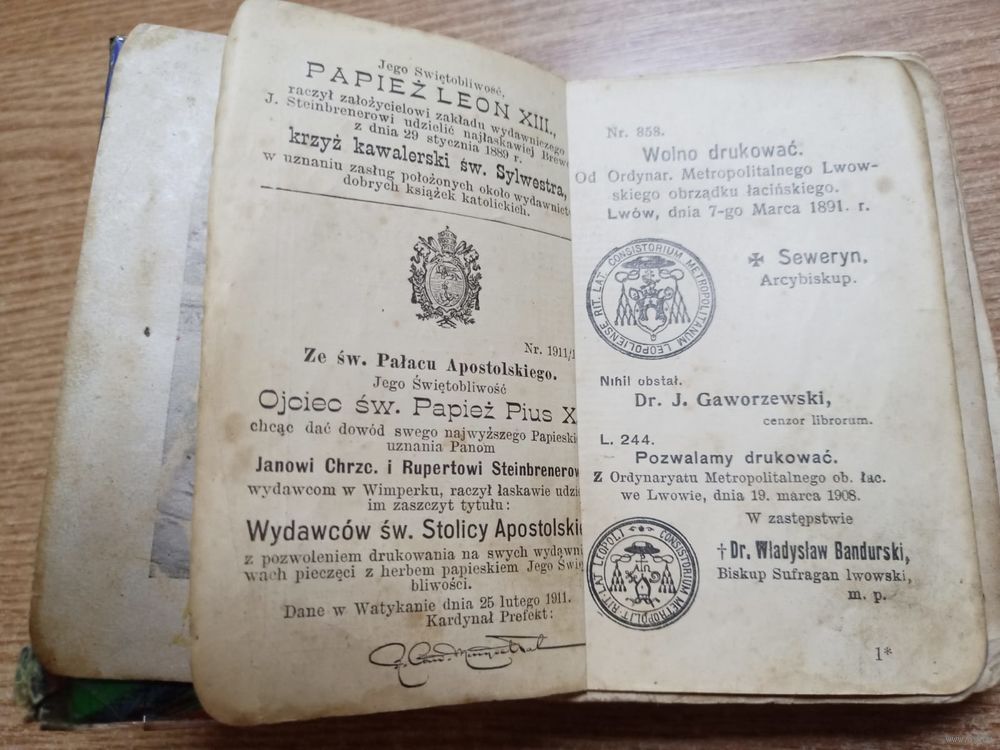 Jego Świętobliwość,
PAPIEŻ LEON XIII.,
raczył założycielowi zakładu wydawniczego
J. Steinbrenerowi udzielić najłaskawiej Brewe
z dnia 29 stycznia 1889 r.
krzyż kawalerski św. Sylwestra,
w uznaniu zasług położonych około wydawnictw
dobrych książek katolickich.
Nr. 1911/1
Ze św. Pałacu Apostolskiego.
Jego Świętobliwość
Ojciec św. Papież Pius X
chcąc dać dowód swego najwyższego Papieski
uznania Panom
Janowi Chrzc. i Rupertowi Steinbrenerow
wydawcom w Wimperku, raczył łaskawie udzie
im zaszczyt tytułu:
Wydawców św. Stolicy Apostolskie
z pozwoleniem drukowania na swych wydawni
wach pieczęci z herbem papieskiem Jego Świą
bliwości.
Dane w Watykanie dnia 25 lutego 1911.
Kardynał Prefekt:
Nr. 858.
Wolno drukować.
Od Ordynar. Metropolitalnego Lwow-
skiego obrządku łacińskiego.
Lwów, dnia 7-go Marca 1891. r.
CONSISTORIUM METROPOLITANUM LEOPOLIENSE RIT. LAT.
✠ Seweryn,
Arcybiskup.
Nihil obstat.
Dr. J. Gaworzewski,
cenzor librorum.
L. 244.
Pozwalamy drukować.
Z Ordynaryatu Metropolitalnego ob. łac.
we Lwowie, dnia 19. marca 1908.
W zastępstwie
CONSISTORIUM METROPOLIT·RIT·LAT LEOPOLI
†Dr. Władysław Bandurski,
Biskup Sufragan lwowski,
m. p.
1*